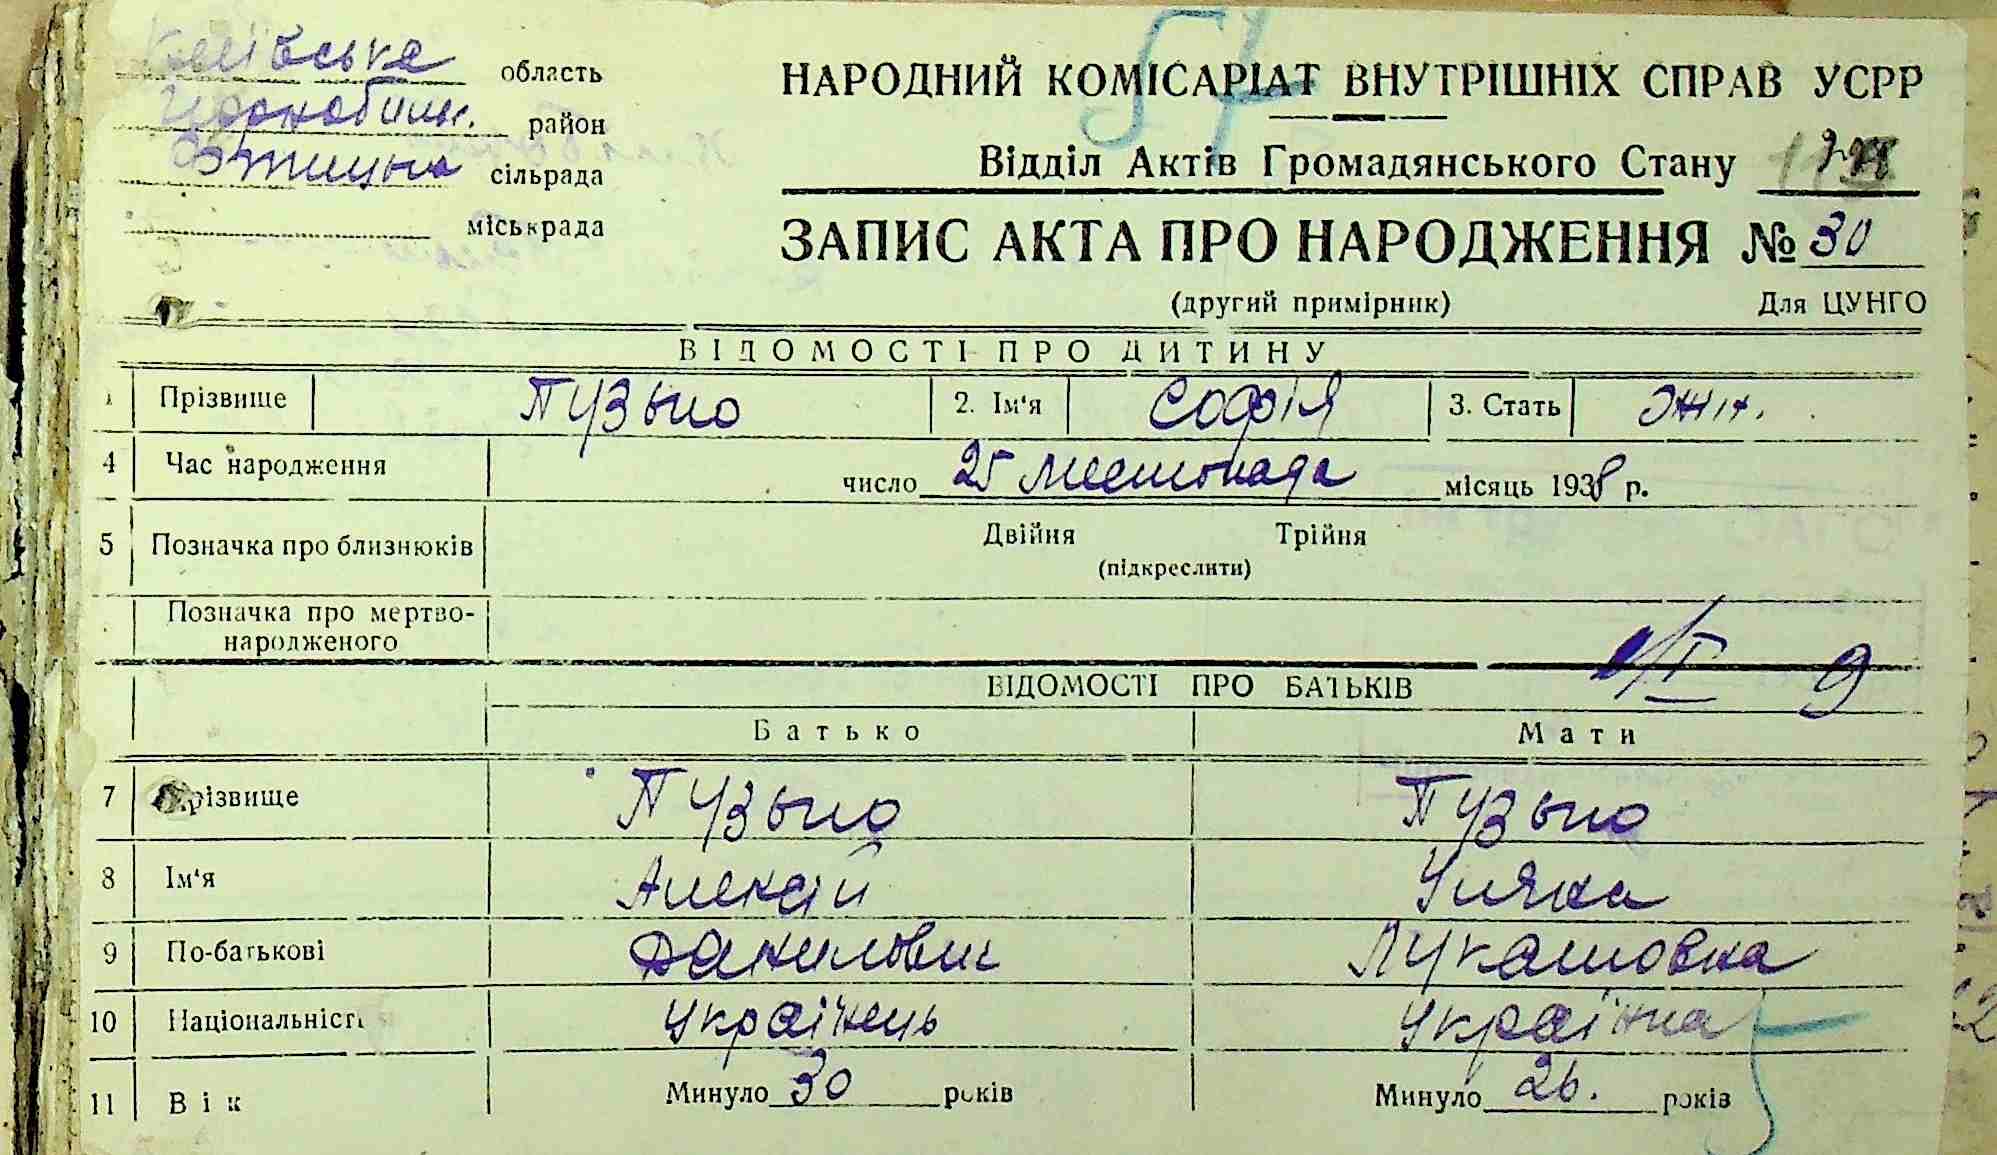 Київська область
Чорнобильс. район
сільрада
міськрада
НАРОДНИЙ КОМІСАРІАТ ВНУТРІШНІХ СПРАВ УСРР
Відділ Актів Громадянського Стану
ЗАПИС АКТА ПРО НАРОДЖЕННЯ № 30
(другий примірник) Для ЦУНГО
ВІДОМОСТІ ПРО ДИТИНУ
1 Прізвище Пузьно 2. Ім'я Софія 3. Стать жін.
4 Час народження число 25 листопада місяць 1938 р.
5 Позначка про близнюків Двійня Трійня
(підкреслити)
Позначка про мертво-
народженого
ВІДОМОСТІ ПРО БАТЬКІВ
Батько Мати
7 Прізвище Пузьно Пузьно
8 Ім'я Алексій Уляна
9 По-батькові Данилович Лукашовна
10 Національність українець українка
11 Вік Минуло 30 років Минуло 26. років
54